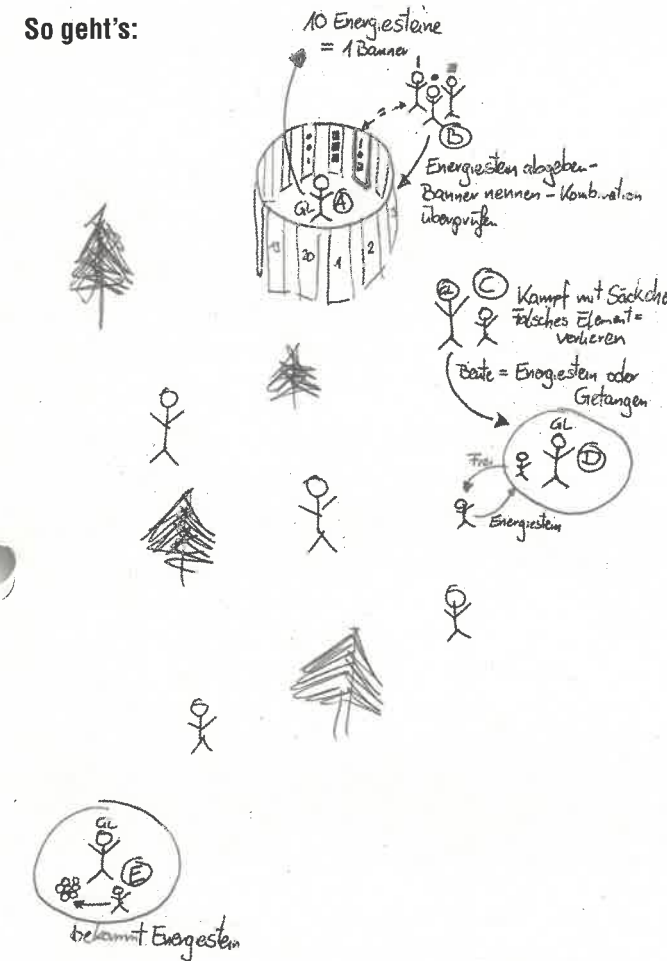 So geht's:
10 Energiesteine
= 1 Banner
B
Energiestein abgeben-
Banner nennen - Kombination
überprüfen
GL A
13 20 1 2 3
GL C
Kampf mit Säckche
Falsches Element =
verlieren
Beute = Energiestein oder
Gefangen
GL
D
Frei
Energiestein
GL
E
bekommt Energiestein